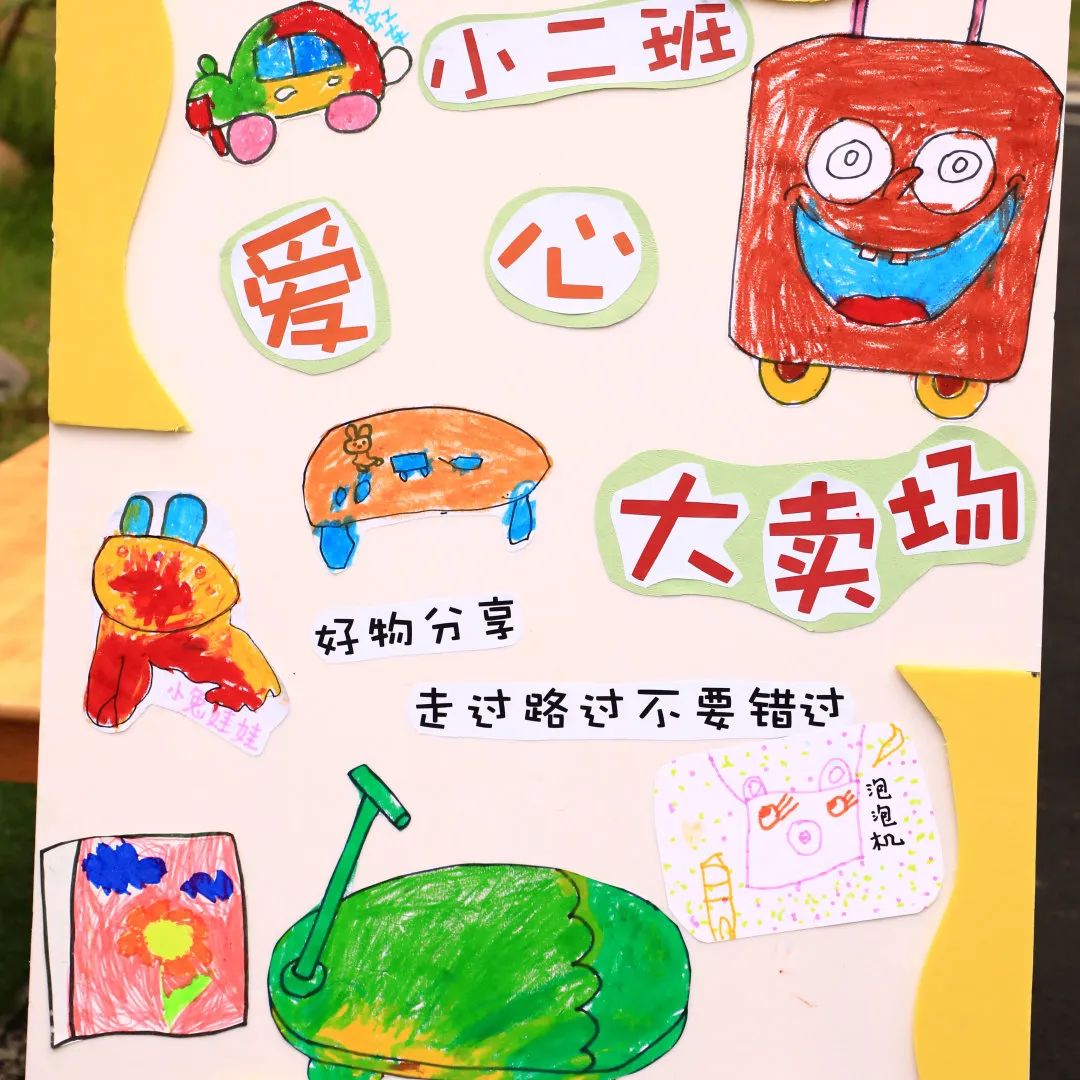 小二班
爱心
大卖场
好物分享
走过路过不要错过
小兔娃娃
泡泡机